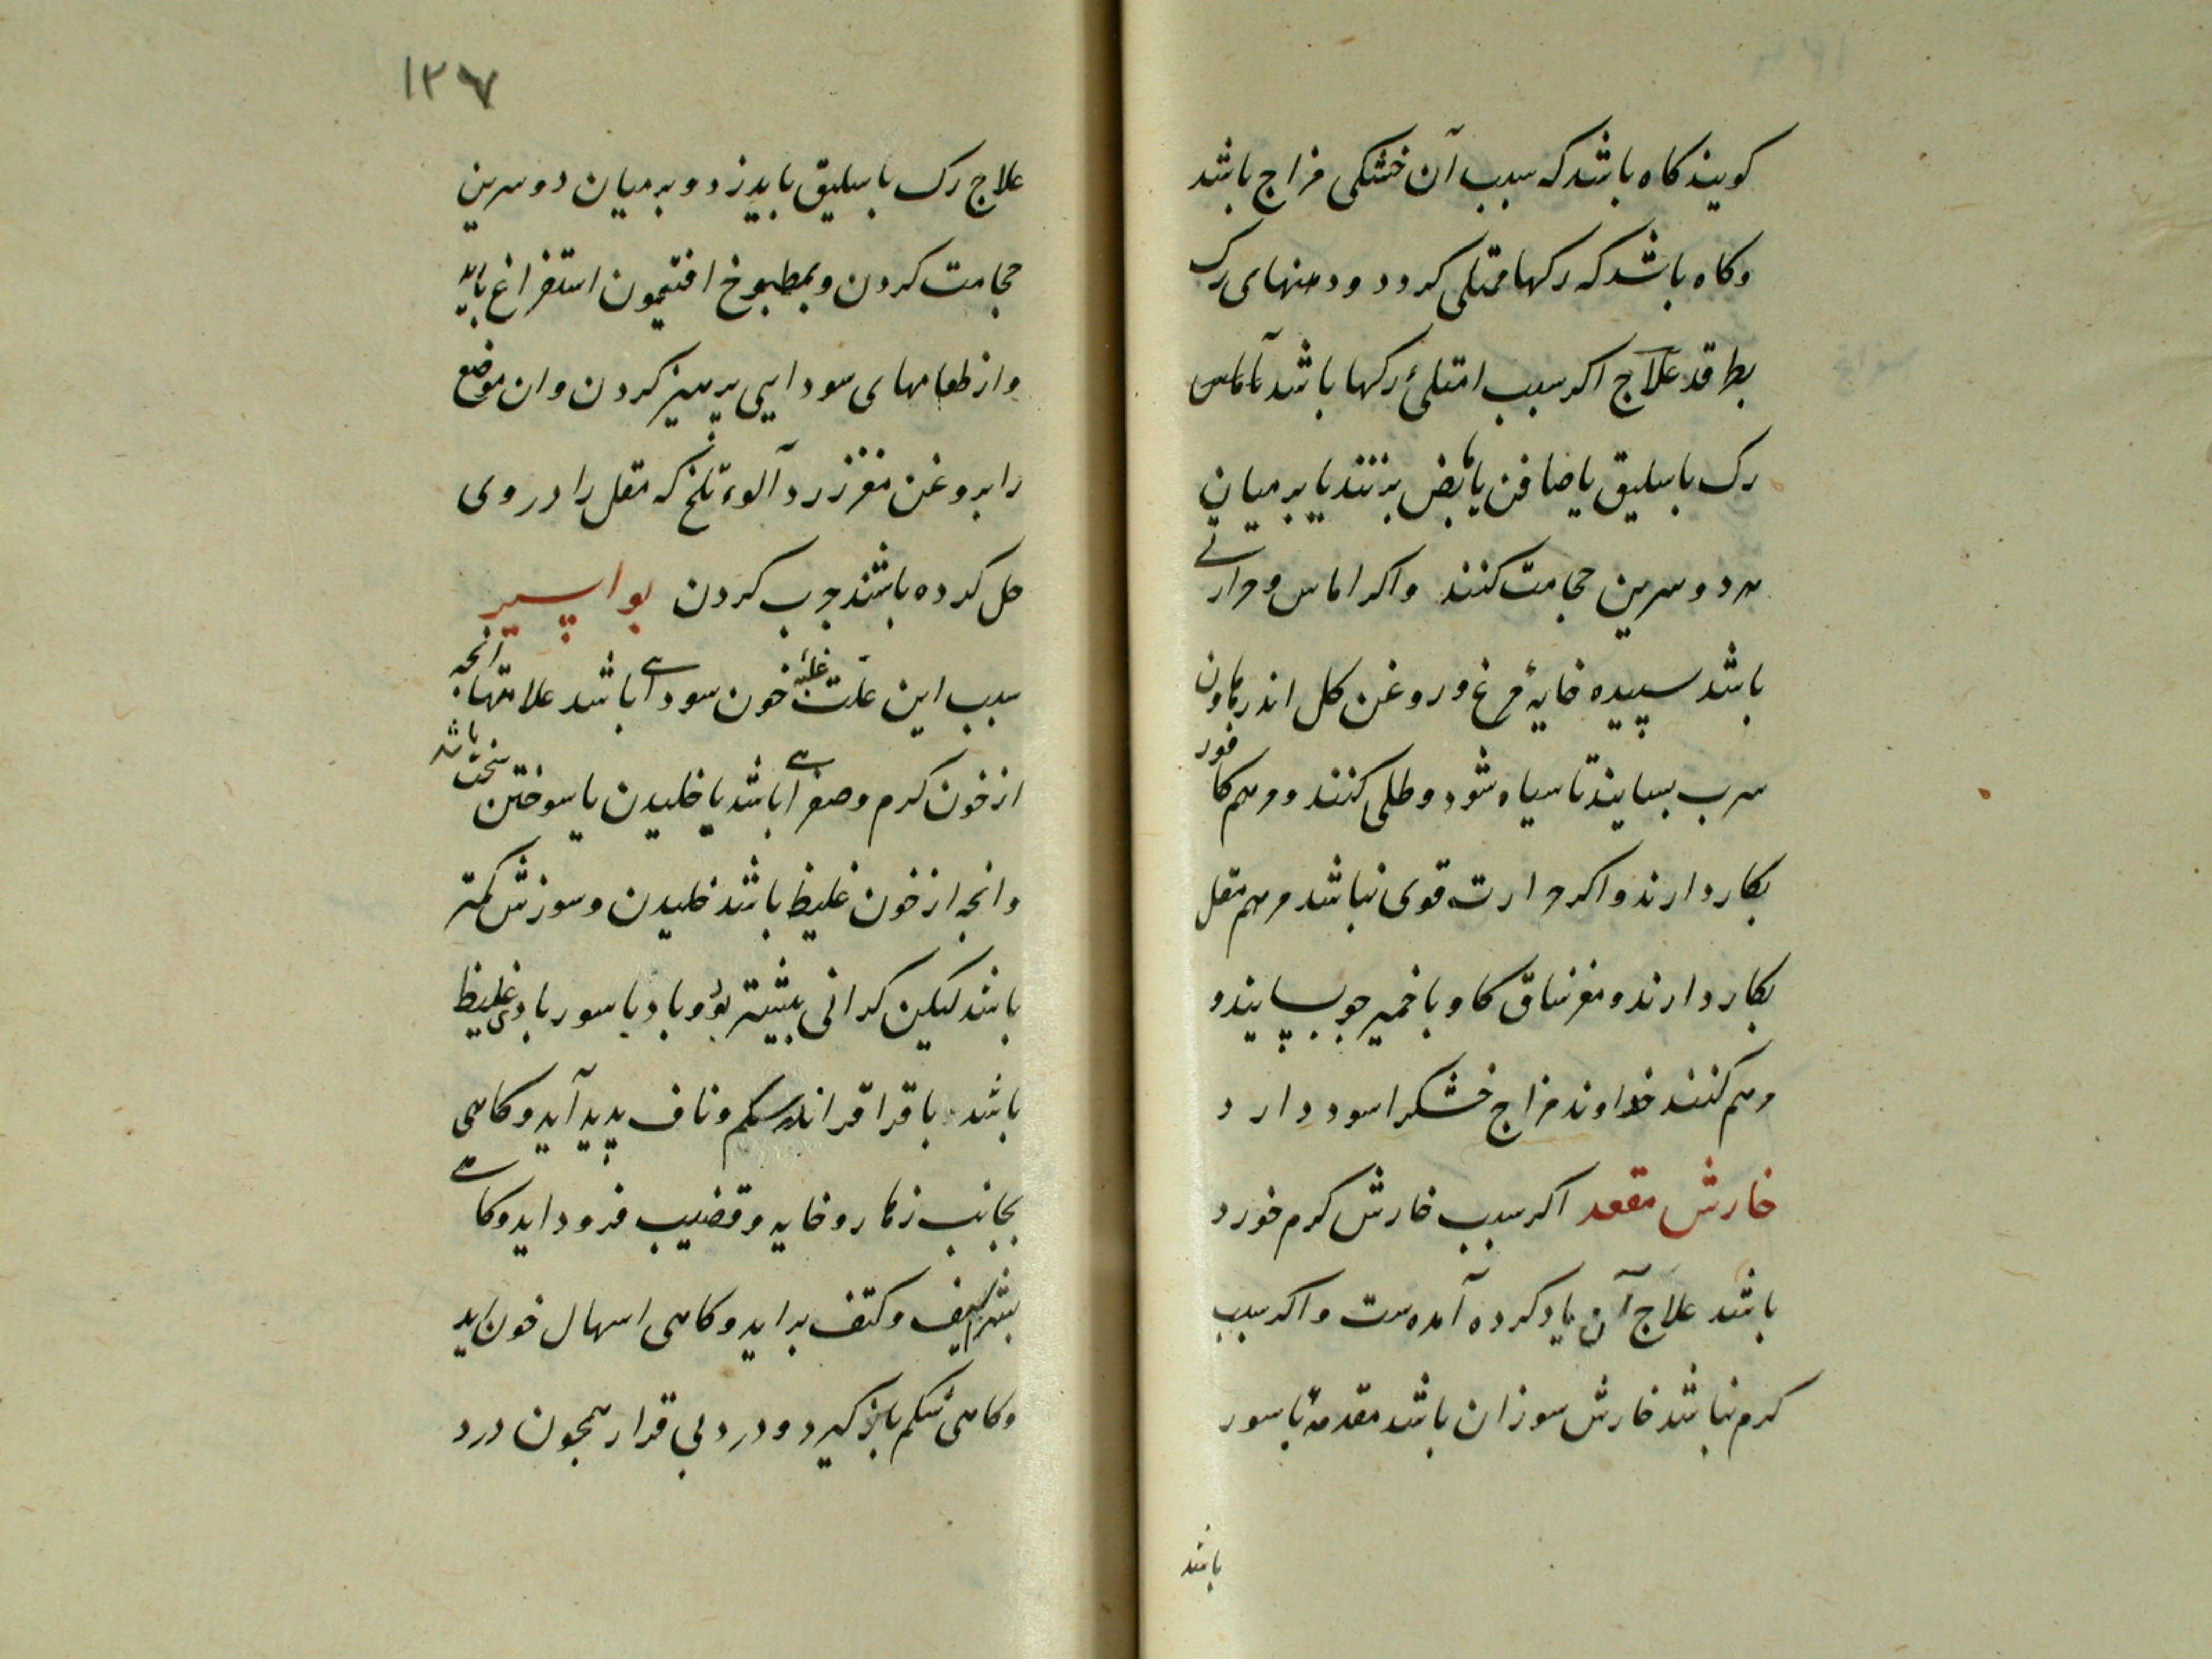 کویند کاه باشد که سبب آن خشکی مزاج باشد
وکاه باشد که رکها ممتلی کردد ودهنهای رک
بطراقد علاج اکر سبب امتلئ رکها باشد تاماس
رک باسلیق یا صافن یا مابض بزنند یا بر میان
هر دو سرین حجامت کنند واکر اماس وحرارتے
باشد سپیده خایهٔ مرغ وروغن کل اندر هاون
سرب بسایند تا سیاه شود وطلی کنند ومرهم کافور
بکار دارند واکر حرارت قوی نباشد مرهم مقل
بکار دارند ومغز ساق کاو با خمیر جو بسایند و
مرهم کنند خداوند مزاج خشکرا سود دارد
خارش مقعد اکر سبب خارش کرم خورد
باشد علاج آن یاد کرده آمده ست واکر سبب
کرم نباشد خارش سوزان باشد مقدمهٔ باسور
باشد
١٢٧
علاج رک باسلیق باید زد و بر میان دو سرین
حجامت کردن وبمطبوخ افتیمون استفراغ باید
واز طعامهای سودایی پرهیز کردن وان موضع
را بروغن مغز زردآلوء تلخ که مقل را در وی
حل کرده باشند جرب کردن بواسیر
سبب این علّت غلبهٔ خون سودایے باشد علامتها انجه
از خون کرم وصفرایے باشد با خلیدن یا سوختن سخت باشد
وانجه از خون غلیظ باشد خلیدن وسوزش کمتر
باشد لیکن کرانی بیشتر بود وباد باسور بادی غلیظ
باشد با قراقر اندر شکم وناف پدید آید وکاهی
بجانب زهار وخایه وقضیب فرود اید وکاهے
بشراسیف وکتف براید وکاهی اسهال خون اید
وکاهی شکم باز کیرد ودرد بی قرار همجون درد